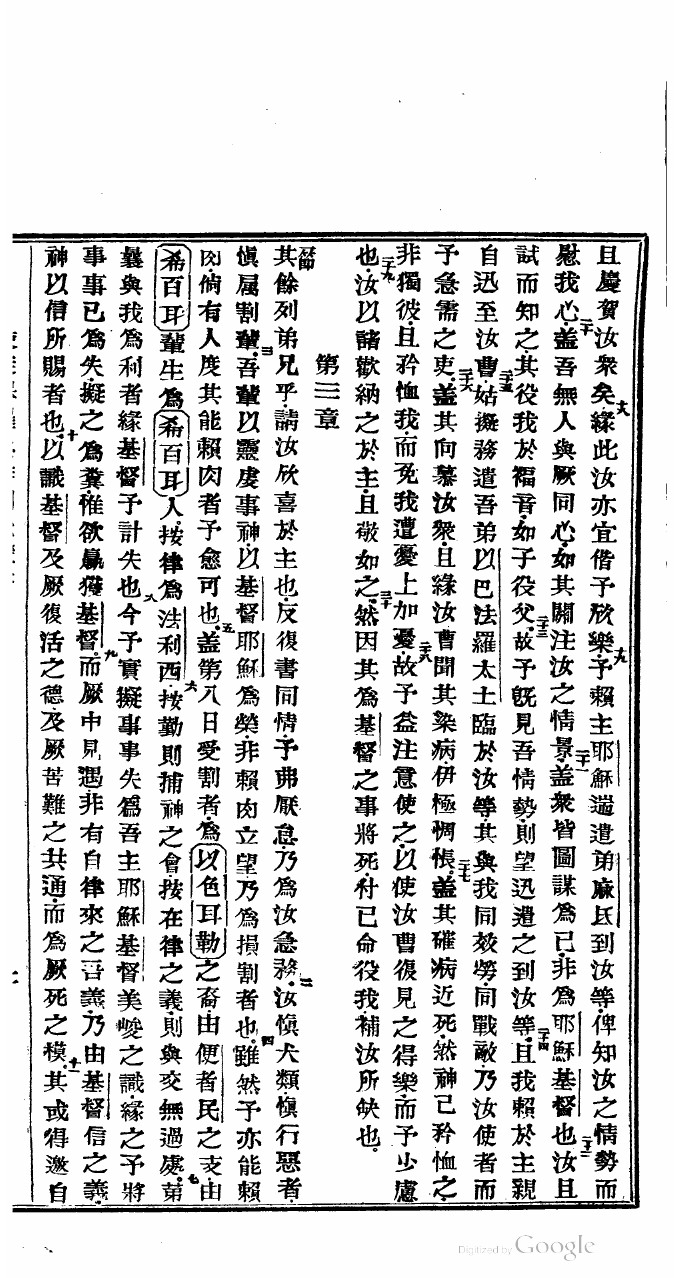 且慶賀汝衆矣十八緣此汝亦宜偕予欣樂十九予賴主耶穌遄遣弟麻氐到汝等俾知汝之情勢而
慰我心二十蓋吾無人與厥同心如其關注汝之情景二十一蓋衆皆圖謀爲己非爲耶穌基督也二十二汝且
試而知之其役我於福音如子役父二十三故予既見吾情勢則望迅遣之到汝等二十四且我賴於主親
自迅至汝曹二十五姑擬務遣吾弟以巴法羅太士臨於汝等其與我同效勞同戰敵乃汝使者而
予急需之吏二十六蓋其向慕汝衆且緣汝曹聞其染病伊極惆悵二十七蓋其確病近死然神已矜恤之
非獨彼且矜恤我而免我遭憂上加憂二十八故予益注意使之以使汝曹復見之得樂而予少慮
也二十九汝以諸歡納之於主且敬如之三十然因其爲基督之事將死付已命役我補汝所缺也
第三章
一節其餘列弟兄乎請汝欣喜於主也反復書同情予弗厭怠乃爲汝急務二汝愼犬類愼行惡者
愼属割輩三吾輩以靈虔事神以基督耶穌爲榮非賴肉立望乃爲損割者也四雖然予亦能賴
肉倘有人度其能賴肉者予愈可也五蓋第八日受割者爲以色耳勒之裔由便者民之支由
希百耳輩生爲希百耳人按律爲法利西六按勤則捕神之會按在律之義則與交無過處七第
曩與我爲利者緣基督予計失也八今予實擬事事失爲吾主耶穌基督美峻之識緣之予將
事事已爲失擬之爲糞惟欲贏獲基督九而厥中見遇非有自律來之吾義乃由基督信之義
神以信所賜者也十以識基督及厥復活之德及厥苦難之共通而爲厥死之模十一其或得邀自
Digitized by Google